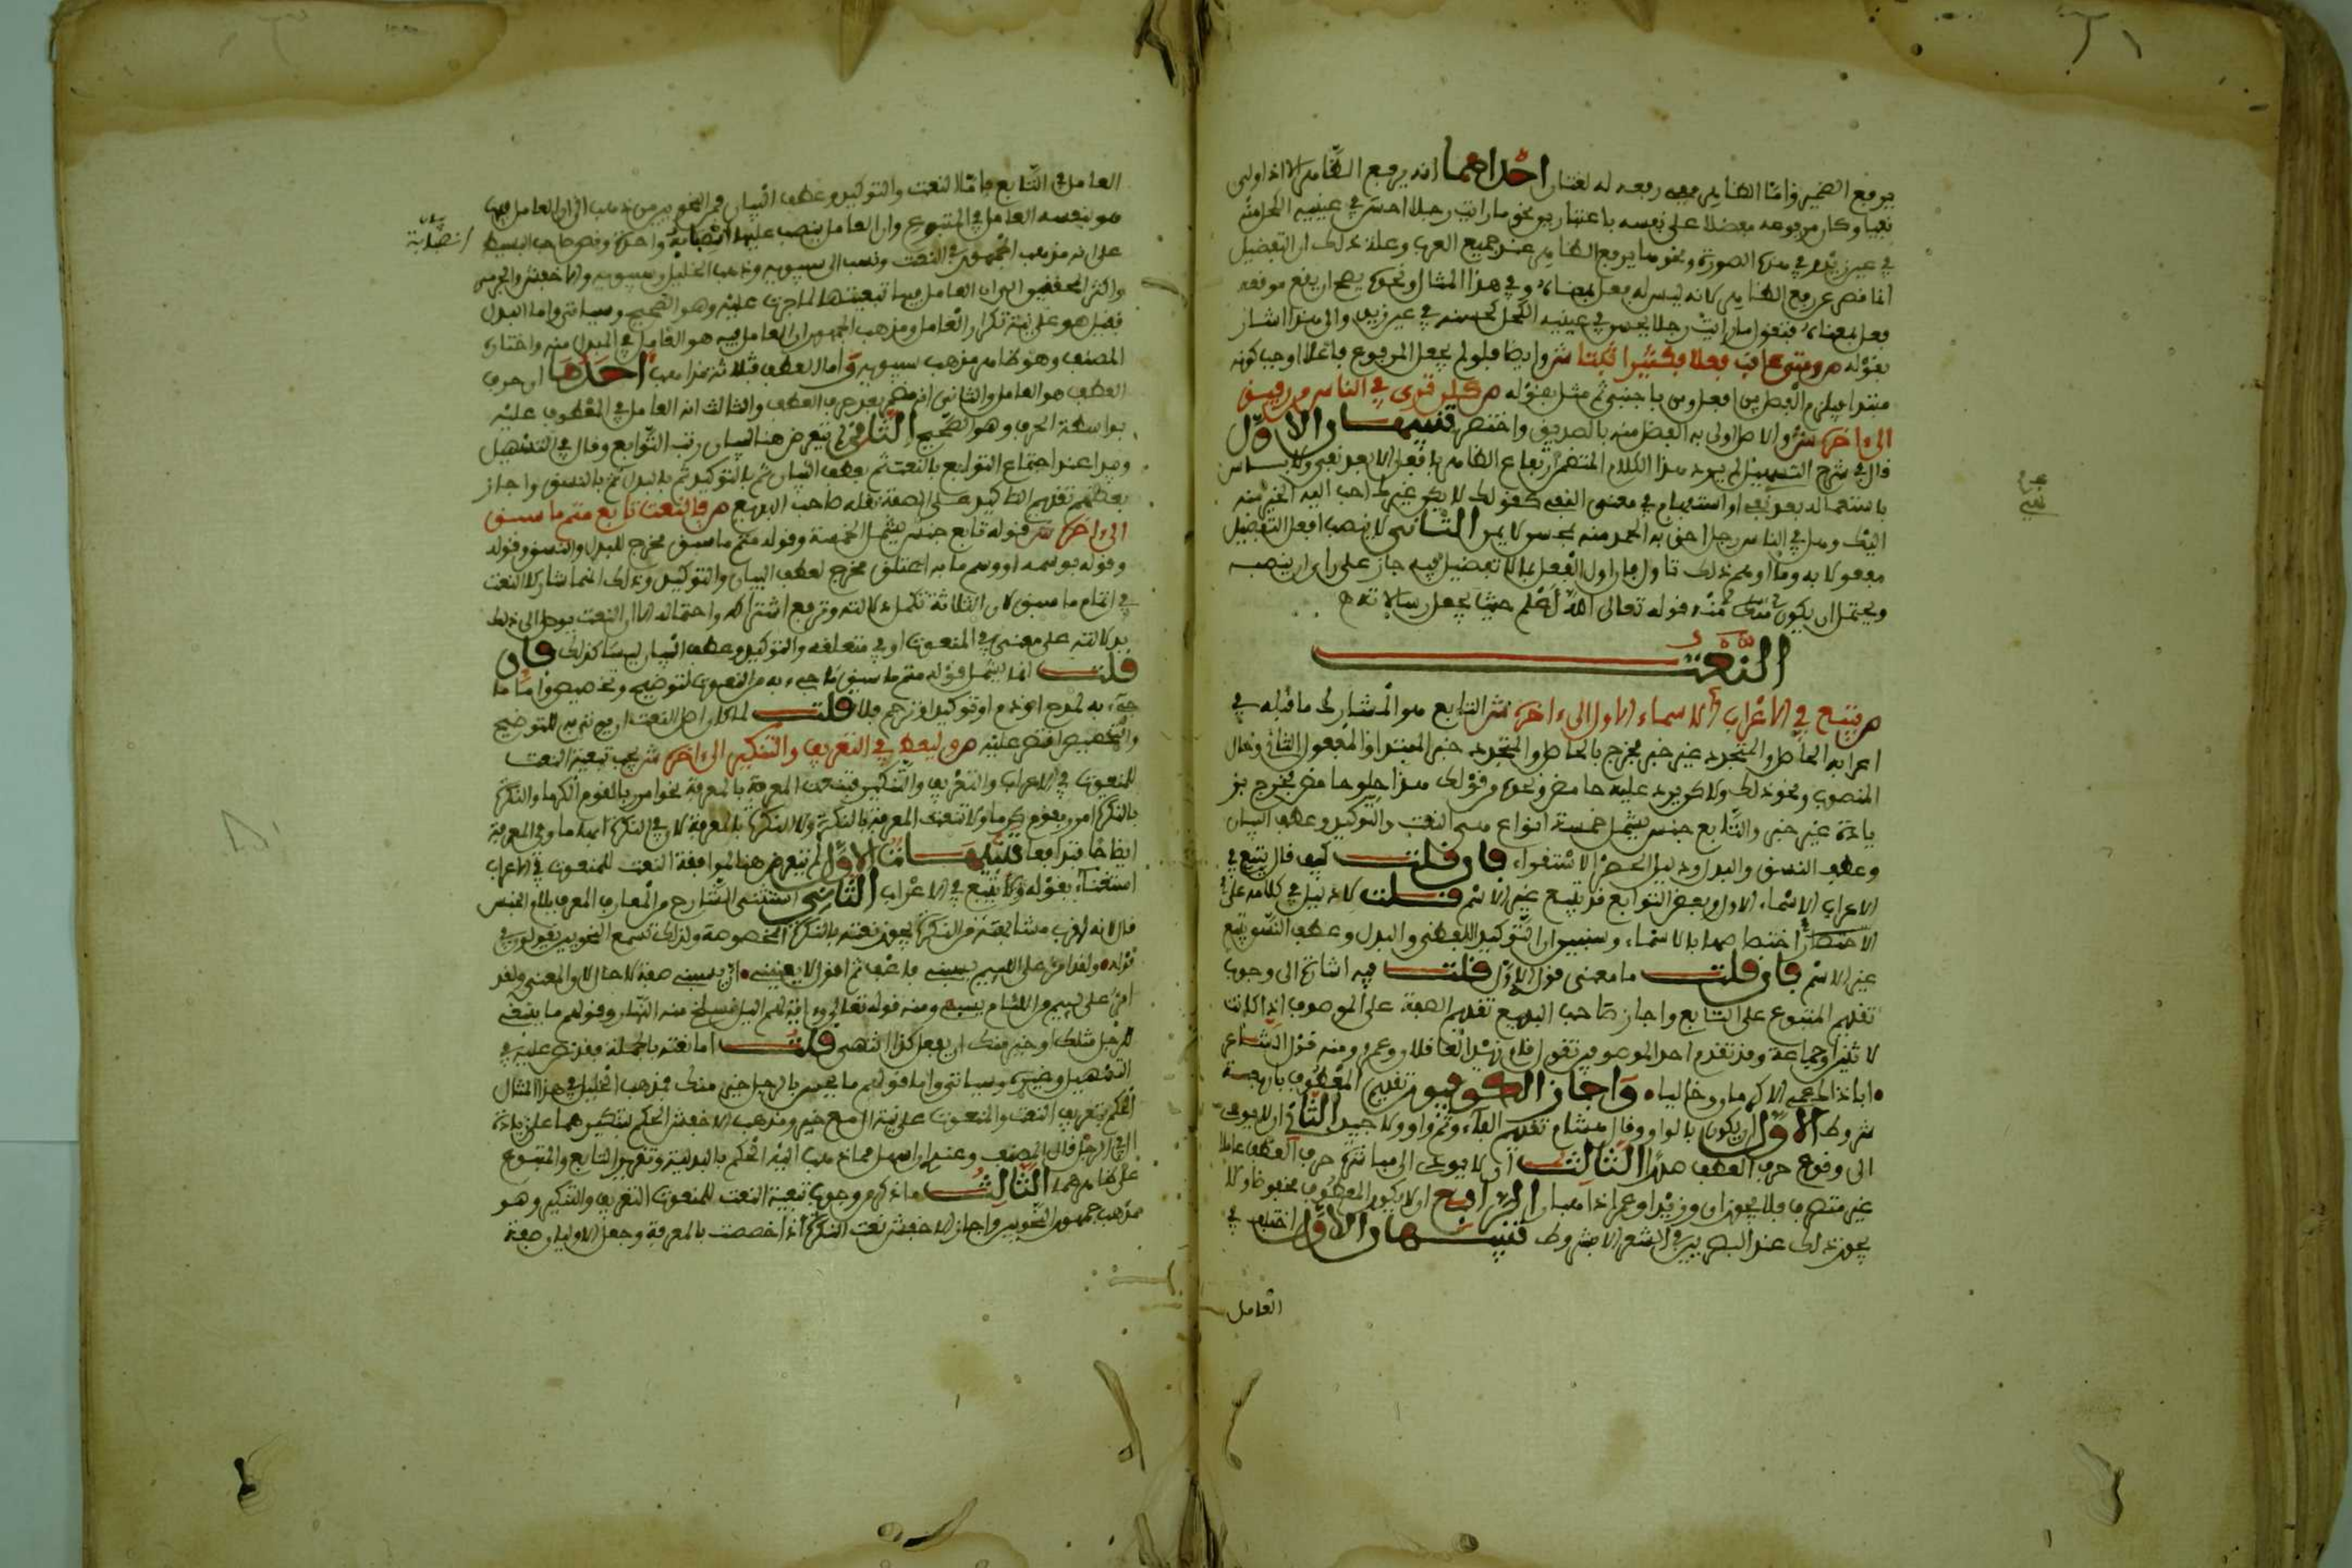 يرفع الضمير وامّا الظاهر ففى رفعه له لغتان احداهما انه يرفع الظاهر الا اذا ولى
نفيا وكان مرفوعه مفضلا على نفسه باعتبارين نحو ما رايت رجلا احسن في عينيه الكحل منه
في عين زيد وفي هذه الصورة ونحوها يرفع الظاهر عند جميع العرب وعلة ذلك ان افعل التفضيل
انما قصر عن رفع الظاهر لانه ليس له فعل بمعناه وفي هذا المثال ونحوه يصح ان يقع موقعه
فعل بمعناه فتقول ما رايت رجلا يحسن في عينيه الكحل كحسنه في عين زيد والى هذا اشار
بقوله ص ومتى عاقب فعلا فكثيرا ثبتا ش وايضا فلو لم يجعل المرفوع فاعلا لوجب كونه
مبتدا فيلزم الفصل بين افعل ومن باجنبي ثم مثل بقوله ص كلن ترى في الناس من رفيق
الى ءاخره ش والاصل اولى به الفضل منه بالصديق واختصر تنبيهان الاول
قال في شرح التسهيل لم يرد هذا الكلام المتضمن ارتفاع الظاهر بافعل الا بعد نفي ولا باس
باستعماله بعد نهي او استفهام في معنى النفي كقولك لا يكن غيرك احب اليه الخير منه
اليك وهل في الناس رجل احق به الحمد منه بمحسن لا يمن الثاني لا ينصب افعل التفضيل
مفعولا به وما اوهم ذلك تاول فان اول الفعل بما لا تفضيل فيه جاز على راى ان ينصبه
ويحتمل ان يكون منه قوله تعالى الله اعلم حيث يجعل رسالاته ص
النعت
ص يتبع في الاعراب الاسماء الاول الى ءاخره ش التابع هو المشارك ما قبله في
اعرابه الحاصل والمتجدد غير خبر فخرج بالحاصل والمتجدد خبر المبتدا والمفعول الثاني وحال
المنصوب ونحو ذلك ولا يرد عليه حامض ونحوه من قولك هذا حلو حامض فخرج بز
يادة غير خبر والتابع جنس يشمل خمسة انواع هي النعت والتوكيد وعطف البيان
وعطف النسق والبدل ودليل الحصر الاستقراء فان قلت كيف قال يتبع في
الاعراب الاسماء الاول وبعض التوابع قد يتبع غير الاسم قلت لا دليل في كلامه على
الاختصار اختصاصها بالاسماء وسنبين ان التوكيد اللفظي والبدل وعطف النسق يتبع
غير الاسم فان قلت ما معنى قوله الاول قلت فيه اشارة الى وجوب
تقديم المتبوع على التابع واجاز صاحب البديع تقديم الصفة على الموصوف اذا كانت
لاثنين او جماعة وقد تقدم احد الموصوفين تقول قام زيد العاقلان وعمرو ومنه قول الشاعر
اباذ المحبى الاكرمان وخاليا واجاز الكوفيون تقديم المعطوف باربعة
شروط الاول ان يكون بالواو وقال هشام تقديم الفاء وثم واو ولا جيد الثاني ان لا يودى
الى وقوع حرف العطف صدرا الثالث ان لا يودى الى مباشرة حرف العطف عاملا
غير متصرف فلا يجوز ان وزيدا وعمرا ذاهبان الرابع ان لا يكون المعطوف مخفوضا ولا
يجوز ذلك عند البصريين في الشعر الا بشروط تنبيهان الاول اختلف في
العامل
العامل في التابع فامّا النعت والتوكيد وعطف البيان فمن النحويين من ذهب الى ان العامل فيها
هو بنفسه العامل في المتبوع وان العامل ينصب عليهما انصبابة واحدة ونص صاحب البسيط
انصبابة
على انه مذهب الجمهور في النعت ونسب الى سيبويه وذهب الخليل وسيبويه والاخفش والجرمي
واكثر المحققين الى ان العامل فيها تبعيتها لما جرت عليه وهو الصحيح وسياتي واما البدل
فقيل هو على نية تكرار العامل ومذهب الجمهور ان العامل فيه هو العامل في المبدل منه واختاره
المصنف وهو ظاهر مذهب سيبويه واما العطف فثلاثة مذاهب احدها ان حرف
العطف هو العامل والثاني انه مضمر بعد حرف العطف والثالث انه العامل في المعطوف عليه
بواسطة الحرف وهو الصحيح الثاني لم يتعرض هنا لبيان رتب التوابع وقال في التسهيل
ويبدا عند اجتماع التوابع بالنعت ثم بعطف البيان ثم بالتوكيد ثم بالبدل ثم بالنسق واجاز
بعضهم تقديم التاكيد على الصفة نقله صاحب البديع ص فالنعت تابع متم ما سبق
الى ءاخره ش قوله تابع جنس يشمل الخمسة وقوله متم ما سبق مخرج للبدل والنسق وقوله
وقوله بوسمه او وسم ما به اعتلق مخرج لعطف البيان والتوكيد وذلك انهما شاركا النعت
في اتمام ما سبق لان الثلاثة تكمل دلالته وترفع اشتراكه واحتماله الا ان النعت يوصل الى ذلك
بدلالته على معنى في المنعوت او في متعلقه والتوكيد وعطف البيان ليسا كذلك فان
قلت انما يشمل قوله متم ما سبق ما جيء به من النعوت لتوضيح وتخصيص اما ما
جيء به لمدح او ذم او توكيد او ترحم فلا قلت لما كان اصل النعت ان يوتى به للتوضيح
والتخصيص اقتصر عليه ص وليعط في التعريف والتنكير الى ءاخره ش يجب تبعية النعت
للمنعوت في الاعراب والتعريف والتنكير فتنعت المعرفة بالمعرفة نحو امرر بالقوم الكرما والنكرة
بالنكرة امرر بقوم كرما ولا تنعت المعرفة بالنكرة ولا النكرة بالمعرفة لان في النكرة ابهاما وفي المعرفة
ايضاحا فتدافعا تنبيهات الاول لم يتعرض هنا لموافقة النعت للمنعوت في الاعراب
استغناء بقوله اولا يتبع في الاعراب الثاني استثنى الشارح من المعارف المعرف بلام الجنس
قال لانه لقرب مشابهته من النكرة يجوز نعته بالنكرة المخصوصة ولذلك تسمع النحويين يقولون في
قوله ولقد امر على اللئيم يسبني فاعف ثم اقول لا يعنيني ان يسبني صفة لا حال لان المعنى ولقد
امر على لئيم من اللئام يسبني ومنه قوله تعالى وءاية لهم اليل نسلخ منه النهار وقولهم ما ينبغي
للرجل مثلك او خير منك ان يفعل كذا انتهى قلت اما نعته بالجملة فقد نص عليه في
التسهيل وغيره وسياتي واما قولهم ما يحسن بالرجل خير منك فمذهب الخليل في هذا المثال
الحكم بتعريف النعت والمنعوت على نية ال مع خير ومذهب الاخفش الحكم بتنكيرهما على زيادة
ال في الرجل قال المصنف وعندى ان اسهل مما ذهب اليه الحكم بالبدلية وتقرير التابع والمتبوع
على ظاهرهما الثالث ما ذكره من وجوب تبعية النعت للمنعوت في التعريف والتنكير وهو
مذهب جمهور النحويين واجاز الاخفش نعت النكرة اذا خصصت بالمعرفة وجعل الاوليان صفة